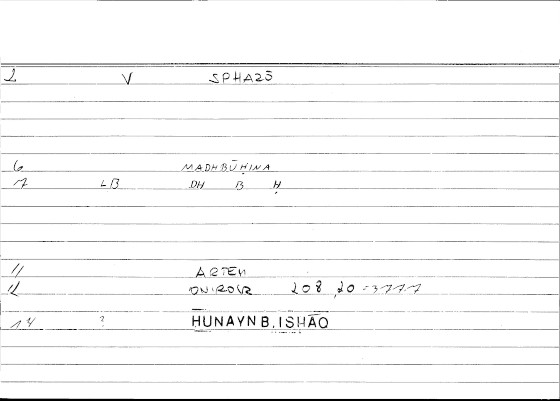 2 V SPHA25
6 MADHBŪḤINA
7 LB DH B Ḥ
11 ARTEM
12 ONIROCR 208,20-3777
14 ? HUNAYN B. ISHĀQ